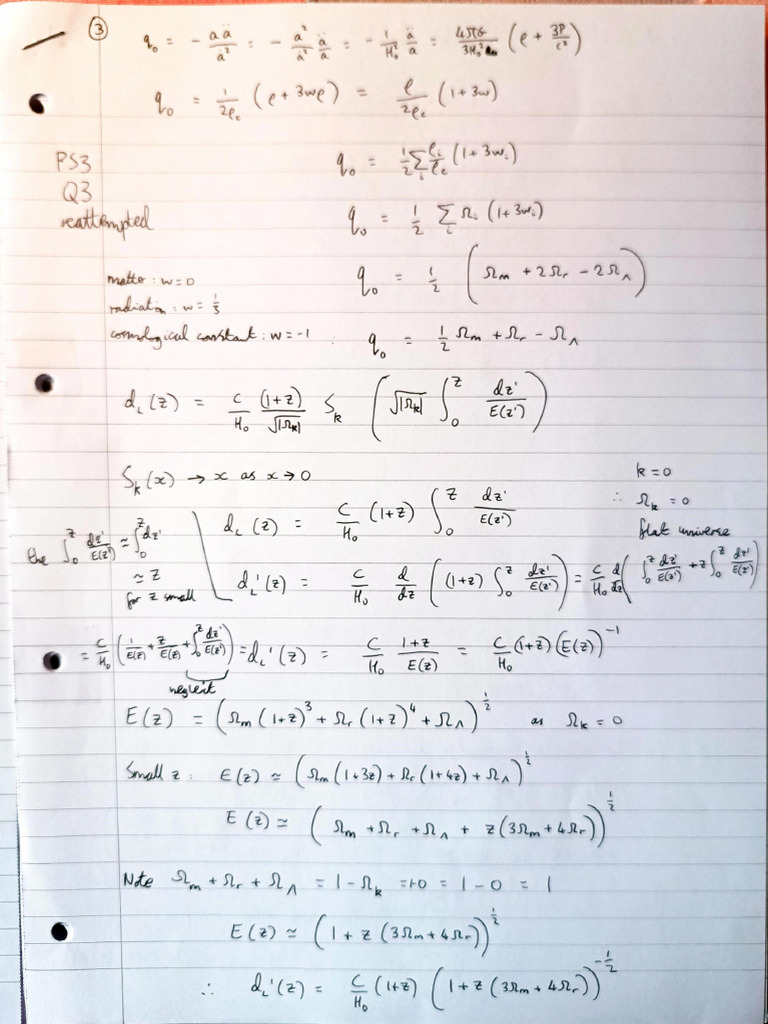 ③ q₀ = - aä/ȧ² = - a²/ȧ² ä/a = - 1/H₀² ä/a = 4πG/3H₀² (ρ + 3P/c²)
q₀ = 1/2ρc (ρ + 3wρ) = ρ/2ρc (1+3w)
PS3
Q3
reattempted
q₀ = 1/2 Σᵢ ρᵢ/ρc (1+3wᵢ)
q₀ = 1/2 Σᵢ Ωᵢ (1+3wᵢ)
q₀ = 1/2 (Ωm + 2Ωr - 2Ω_Λ)
matter : w = 0
radiation : w = 1/3
cosmological constant : w = -1 : q₀ = 1/2 Ωm + Ωr - Ω_Λ
d_L(z) = C/H₀ (1+z)/√|Ωk| S_k (√|Ωk| ∫₀^z dz'/E(z'))
S_k(x) → x as x → 0
k = 0
∴ Ωk = 0
flat universe
d_L(z) = C/H₀ (1+z) ∫₀^z dz'/E(z')
the ∫₀^z dz'/E(z') ≈ ∫₀^z dz'
≃ z
for z small
d_L'(z) = C/H₀ d/dz ((1+z) ∫₀^z dz'/E(z')) = C/H₀ d/dz (∫₀^z dz'/E(z') + z∫₀^z dz'/E(z'))
= C/H₀ (1/E(z) + z/E(z) + ∫₀^z dz'/E(z')) = d_L'(z) = C/H₀ (1+z)/E(z) = C/H₀ (1+z)(E(z))^-1
neglect
E(z) = (Ωm(1+z)³ + Ωr(1+z)⁴ + Ω_Λ)^1/2 as Ωk = 0
Small z: E(z) ≃ (Ωm(1+3z) + Ωr(1+4z) + Ω_Λ)^1/2
E(z) ≃ (Ωm + Ωr + Ω_Λ + z(3Ωm + 4Ωr))^1/2
Note Ωm + Ωr + Ω_Λ = 1 - Ωk = 1 - 0 = 1
E(z) ≃ (1 + z(3Ωm + 4Ωr))^1/2
∴ d_L'(z) = C/H₀ (1+z) (1 + z(3Ωm + 4Ωr))^-1/2